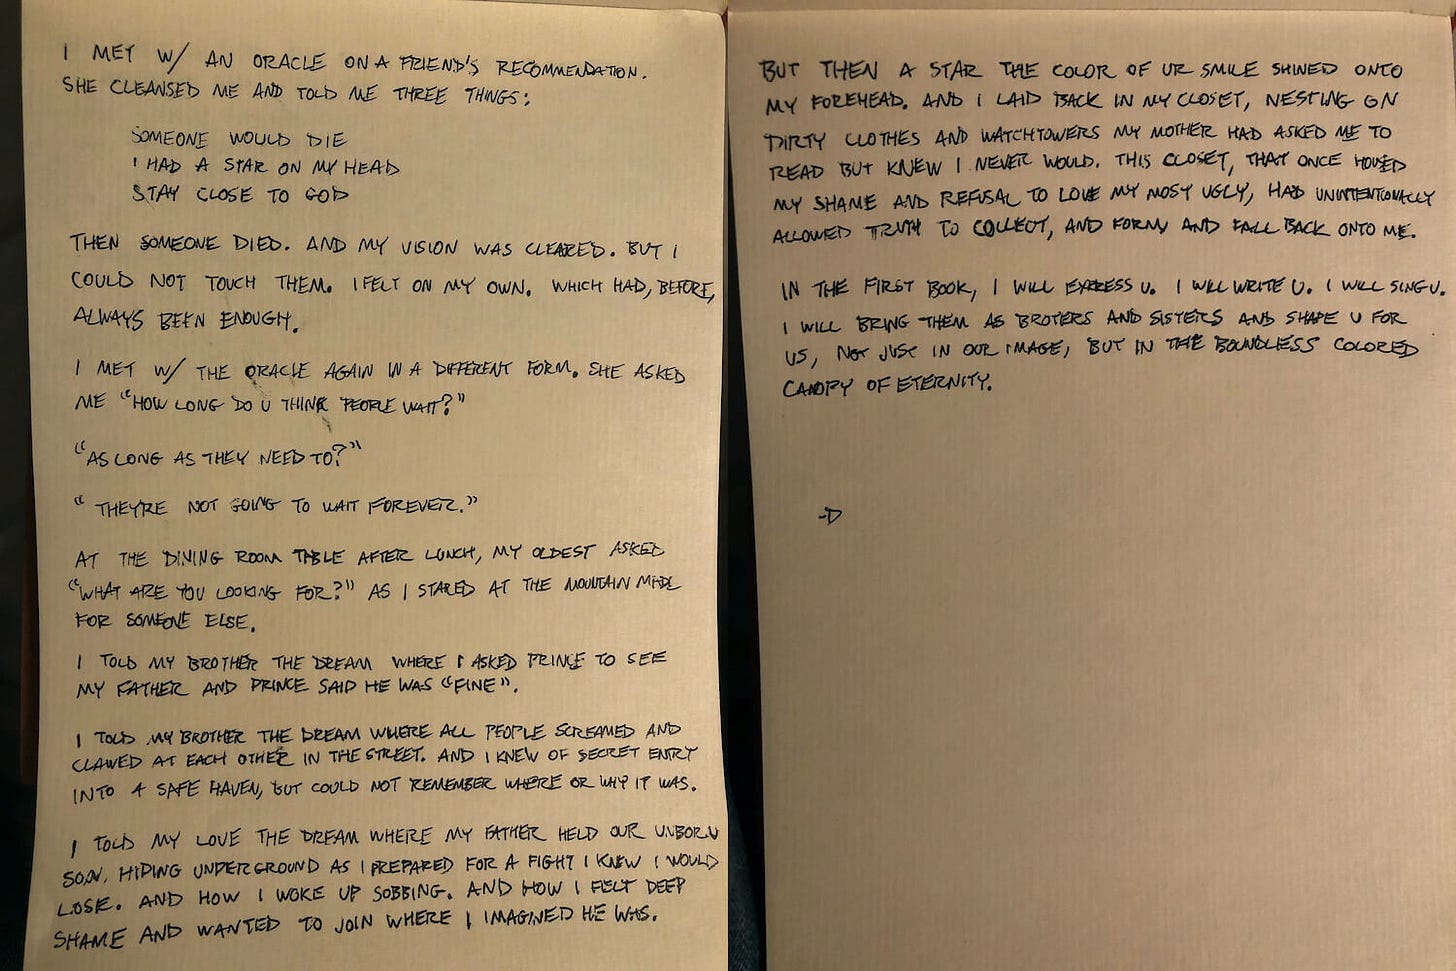 I MET W/ AN ORACLE ON A FRIEND'S RECOMMENDATION.
SHE CLEANSED ME AND TOLD ME THREE THINGS:
SOMEONE WOULD DIE
I HAD A STAR ON MY HEAD
STAY CLOSE TO GOD
THEN SOMEONE DIED. AND MY VISION WAS CLEARED. BUT I
COULD NOT TOUCH THEM. I FELT ON MY OWN. WHICH HAD, BEFORE,
ALWAYS BEEN ENOUGH.
I MET W/ THE ORACLE AGAIN IN A DIFFERENT FORM. SHE ASKED
ME "HOW LONG DO U THINK PEOPLE WAIT?"
"AS LONG AS THEY NEED TO?"
"THEYRE NOT GOING TO WAIT FOREVER."
AT THE DINING ROOM TABLE AFTER LUNCH, MY OLDEST ASKED
"WHAT ARE YOU LOOKING FOR?" AS I STARED AT THE MOUNTAIN MADE
FOR SOMEONE ELSE.
I TOLD MY BROTHER THE DREAM WHERE I ASKED PRINCE TO SEE
MY FATHER AND PRINCE SAID HE WAS "FINE".
I TOLD MY BROTHER THE DREAM WHERE ALL PEOPLE SCREAMED AND
CLAWED AT EACH OTHER IN THE STREET. AND I KNEW OF SECRET ENTRY
INTO A SAFE HAVEN, BUT COULD NOT REMEMBER WHERE OR WHY IT WAS.
I TOLD MY LOVE THE DREAM WHERE MY FATHER HELD OUR UNBORN
SON, HIDING UNDERGROUND AS I PREPARED FOR A FIGHT I KNEW I WOULD
LOSE. AND HOW I WOKE UP SOBBING. AND HOW I FELT DEEP
SHAME AND WANTED TO JOIN WHERE I IMAGINED HE WAS.
BUT THEN A STAR THE COLOR OF UR SMILE SHINED ONTO
MY FOREHEAD. AND I LAID BACK IN MY CLOSET, NESTING ON
DIRTY CLOTHES AND WATCHTOWERS MY MOTHER HAD ASKED ME TO
READ BUT KNEW I NEVER WOULD. THIS CLOSET, THAT ONCE HOUSED
MY SHAME AND REFUSAL TO LOVE MY MOST UGLY, HAD UNINTENTIONALLY
ALLOWED TRUTH TO COLLECT, AND FORM AND FALL BACK ONTO ME.
IN THE FIRST BOOK, I WILL EXPRESS U. I WILL WRITE U. I WILL SING U.
I WILL BRING THEM AS BROTERS AND SISTERS AND SHAPE U FOR
US, NOT JUST IN OUR IMAGE, BUT IN THE BOUNDLESS COLORED
CANOPY OF ETERNITY.
-D